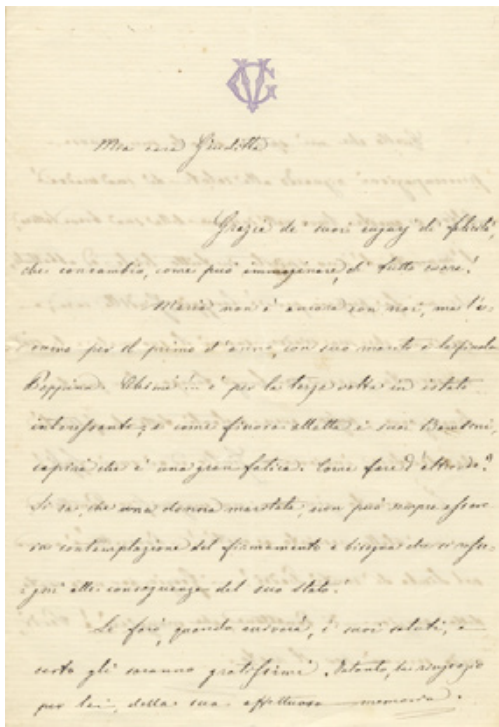 GV
Mia cara Giuditta
Grazie de' suoi augurj di felicità,
che concambio, come può immaginare, di tutto cuore!
Maria non è ancora con noi, ma
per il primo d'anno, con suo marito e la piccola
Peppina. Ohimè!! è per la terza volta in istato
interessante; e come finora allatta i suoi Bambini,
capirà che è una gran fatica. Come fare d'altronde?
Si sa che una donna maritata, non può sempre essere
in contemplazione del firmamento e bisogna che si rasse-
gni alle conseguenze del suo stato.
Le farò, quando arriverà, i suoi saluti, e
certo gli saranno gratissimi. Intanto, la ringrazio
per lei, della sua affettuosa memoria.